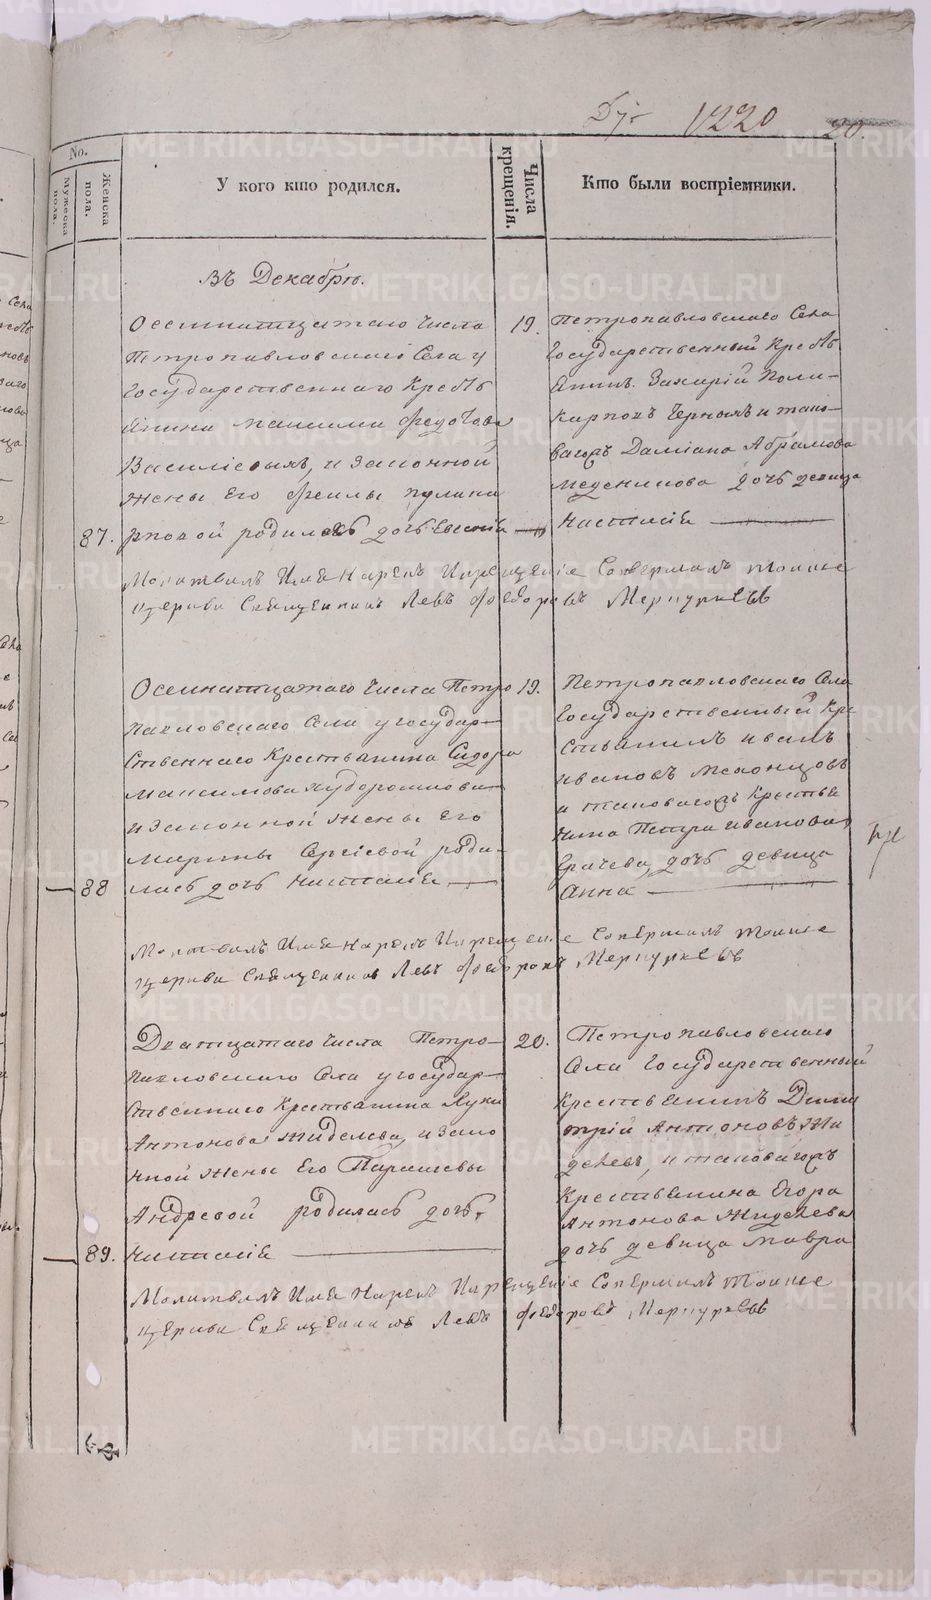 1220
20.
No.
Мужеска пола.
Женска пола.
У кого кто родился.
Числа крещенія.
Кто были воспріемники.
Въ Декабрѣ.
Осемнатцатаго Числа
Петропавловскаго Села у
Государственнаго Кресть
янина
Васильевыхъ, и Законной
жены Его Феклы
87. родилась дочь Евгенія
19.
Петропавловскаго Села
Государственный Кресть
янинъ Захарій Поли-
карповъ Черныхъ и тако-
вагожъ Даміана Абрамова
дочь девица
Настасія
Молитвилъ Имя Нарекъ И Крещеніе Совершилъ тоиже
церкви Священникъ Левъ Федоровъ Меркурьевъ
Осемнатцатаго Числа Петро
павловскаго Села у государ-
ственнаго Крестьянина Сидора
Максимова Худорошкова
и Законной жены Его
Марины Сергіевой роди-
88 лась дочь Настасія
19.
Петропавловскаго Села
Государственный Кре
стьянинъ Иванъ
Ивановъ
и таковагожъ Крестья
нина Петра Иванова
Грачева, дочь девица
Анна
Молитвилъ Имя Нарекъ И Крещеніе Совершилъ тоиже
церкви Священникъ Левъ Федоровъ Меркурьевъ
Дватцатаго Числа Петро-
павловскаго Села у государ-
ственнаго Крестьянина Луки
Антонова Жиделева, и Зако
нной жены Его Параскевы
Андреевой родилась дочь
89. Настасія
20.
Петропавловскаго
Села Государственный
Крестьянинъ Дими
трій Антоновъ Жи
делевъ, и таковагожъ
Крестьянина Егора
Антонова Жиделева
дочь девица Мавра
Молитвилъ Имя Нарекъ И Крещеніе Совершилъ тоиже
церкви Священникъ Левъ Федоровъ Меркурьевъ
METRIKI.GASO-URAL.RU